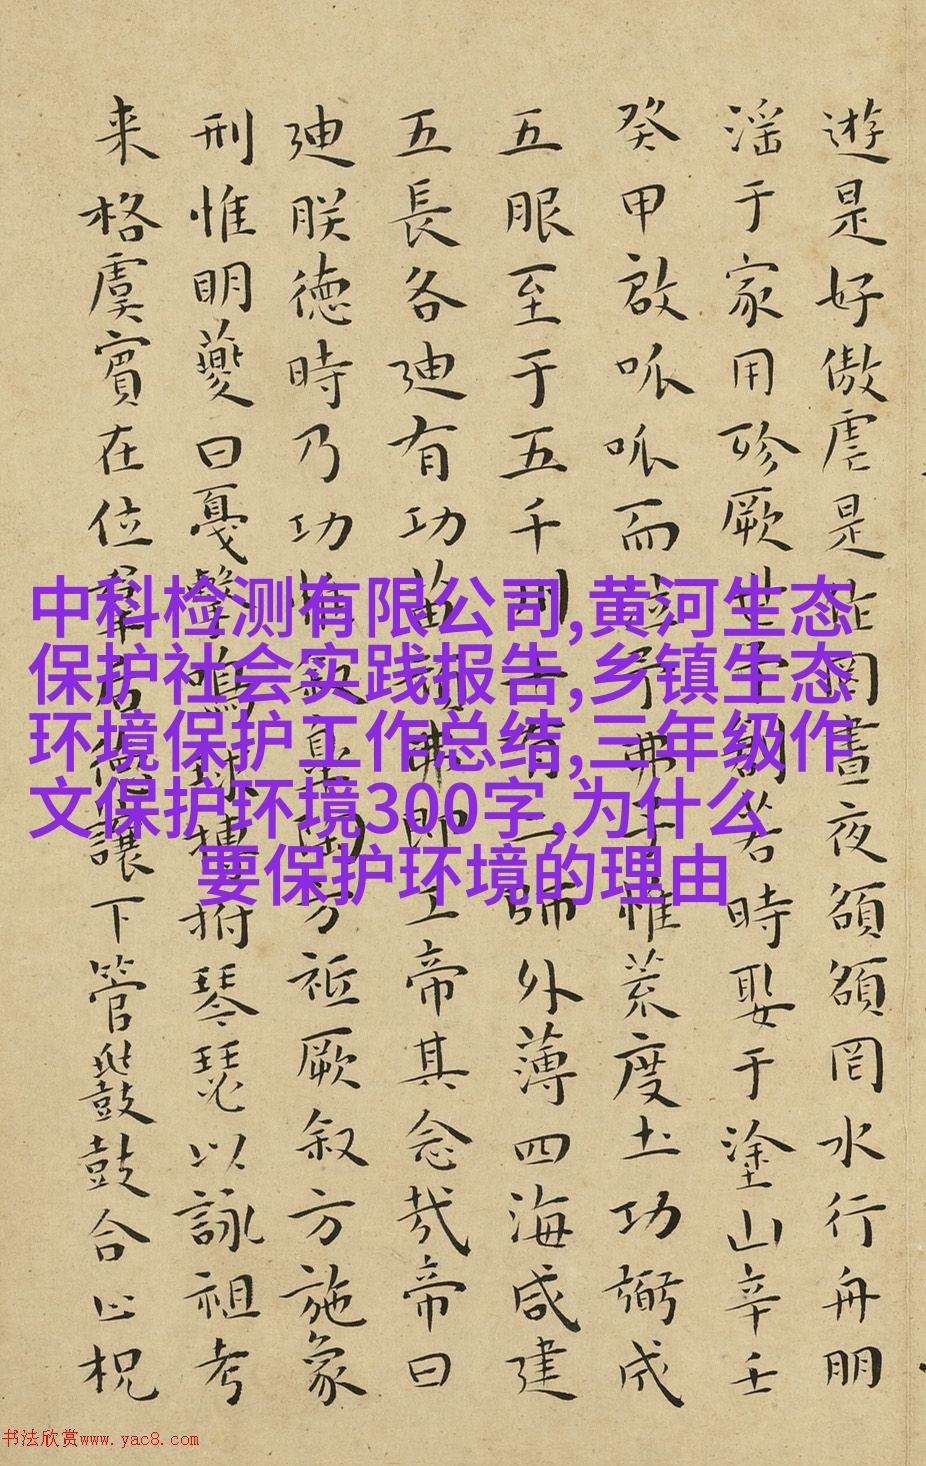 遊是好傲虐是作罔晝夜頟頟罔水行舟朋
淫于家用殄厥世予創若時娶于塗山辛壬
癸甲啟呱呱而泣予弗子惟荒度土功弼成
五服至于五千州十有二師外薄四海咸建
五長各廸有功苗頑弗即工帝其念哉帝曰
廸朕德時乃功惟叙臯陶方祗厥叙方施象
刑惟明夔曰戛擊鳴球搏拊琴瑟以詠祖考
来格虞賓在位羣后德讓下管鼗鼓合止柷
中科检测有限公司,黄河生态
保护社会实践报告,乡镇生态
环境保护工作总结,三年级作
文保护环境300字,为什么
要保护环境的理由
书法欣赏www.yac8.com